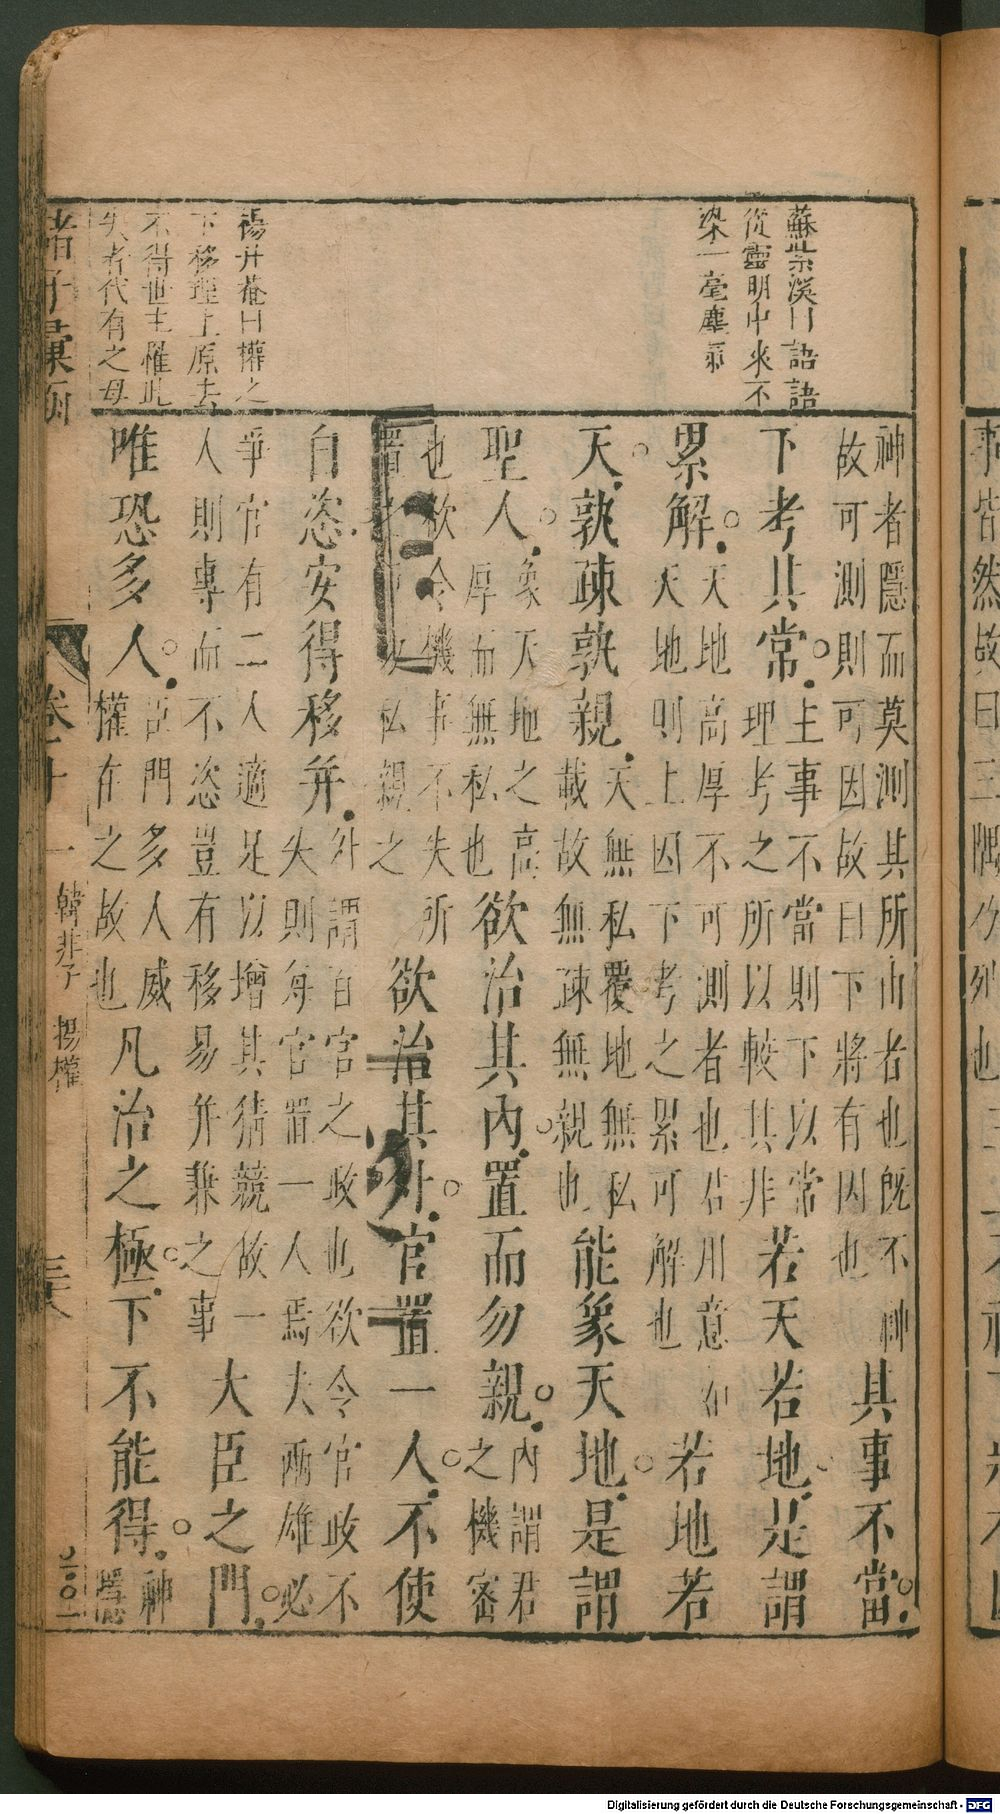 蘇紫溪曰語語
從靈明中來不
染一毫塵
楊升菴曰權之
下移理上原去
不得世主罹此
失者代有之毋
神者隱而莫測其所由者也既不神
故可測則可因故曰下將有因也
其事不當
下考其常
主事不當則下以常
理考之所以較其非
若天若地是謂
累解
天地高厚不可測者也君用意如
天地則上因下考之累可解也
若地若
天孰疎孰親
天無私覆地無私
載故無疎無親也
能象天地是謂
聖人
象天地之高
厚而無私也
欲治其內置而勿親
內謂君
之機密
也欲令機事不失所
置之 私親之
欲治其外官置一人不使
自恣安得移并
外謂百官之政也欲令官政不
失則每官置一人焉夫兩雄必
爭官有二人適足以增其猜競故一
人則專而不恣豈有移易并兼之事
大臣之門
唯恐多人
臣門多人威
權在之故也
凡治之極下不能得
神
隱
諸子彙函
卷十一
韓非子 揚權
Digitalisierung gefördert durch die Deutsche Forschungsgemeinschaft - DFG